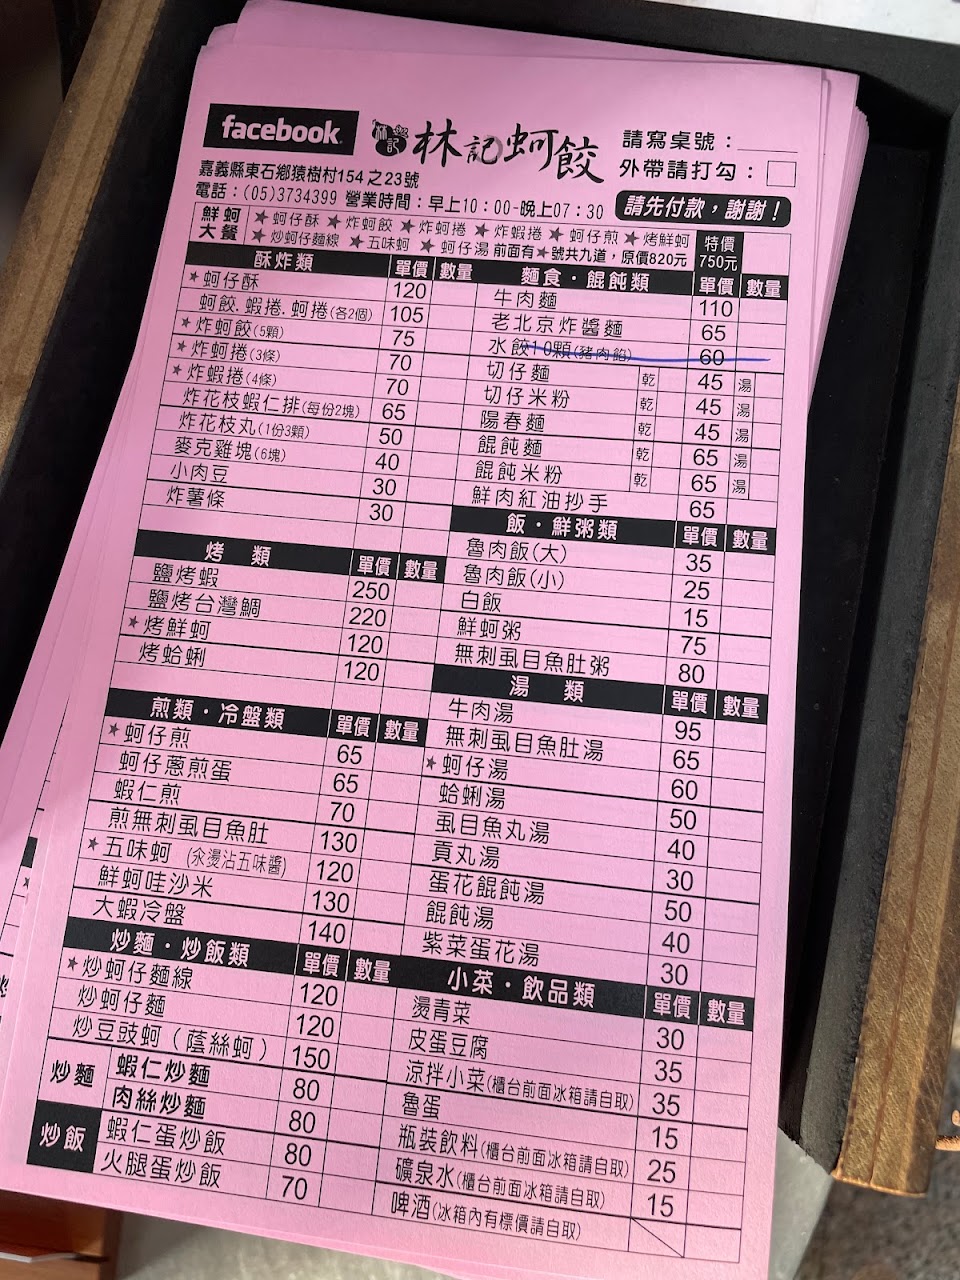 facebook
林記
林記蚵餃
請寫桌號：
外帶請打勾：
嘉義縣東石鄉猿樹村154之23號
電話：(05)3734399 營業時間：早上10：00-晚上07：30
請先付款，謝謝！
鮮蚵大餐
★蚵仔酥 ★炸蚵餃 ★炸蚵捲 ★炸蝦捲 ★蚵仔煎 ★烤鮮蚵
★炒蚵仔麵線 ★五味蚵 ★蚵仔湯 前面有★號共九道，原價820元
特價
750元
酥炸類 單價 數量
★蚵仔酥 120
蚵餃.蝦捲.蚵捲(各2個) 105
★炸蚵餃(5顆) 75
★炸蚵捲(3條) 70
★炸蝦捲(4條) 70
炸花枝蝦仁排(每份2塊) 65
炸花枝丸(1份3顆) 50
麥克雞塊(6塊) 40
小肉豆 30
炸薯條 30
烤 類 單價 數量
鹽烤蝦 250
鹽烤台灣鯛 220
★烤鮮蚵 120
烤蛤蜊 120
煎類・冷盤類 單價 數量
★蚵仔煎 65
蚵仔蔥煎蛋 65
蝦仁煎 70
煎無刺虱目魚肚 130
★五味蚵 (氽燙沾五味醬) 120
鮮蚵哇沙米 130
大蝦冷盤 140
炒麵・炒飯類 單價 數量
★炒蚵仔麵線 120
炒蚵仔麵 120
炒豆豉蚵(蔭絲蚵) 150
炒麵
蝦仁炒麵 80
肉絲炒麵 80
炒飯
蝦仁蛋炒飯 80
火腿蛋炒飯 70
麵食・餛飩類 單價 數量
牛肉麵 110
老北京炸醬麵 65
水餃10顆(豬肉餡) 60
切仔麵 乾 45 湯
切仔米粉 乾 45 湯
陽春麵 乾 45 湯
餛飩麵 乾 65 湯
餛飩米粉 乾 65 湯
鮮肉紅油抄手 65
飯・鮮粥類 單價 數量
魯肉飯(大) 35
魯肉飯(小) 25
白飯 15
鮮蚵粥 75
無刺虱目魚肚粥 80
湯 類 單價 數量
牛肉湯 95
無刺虱目魚肚湯 65
★蚵仔湯 60
蛤蜊湯 50
虱目魚丸湯 40
貢丸湯 30
蛋花餛飩湯 50
餛飩湯 40
紫菜蛋花湯 30
小菜・飲品類 單價 數量
燙青菜 30
皮蛋豆腐 35
涼拌小菜(櫃台前面冰箱請自取) 35
魯蛋 15
瓶裝飲料(櫃台前面冰箱請自取) 25
礦泉水(櫃台前面冰箱請自取) 15
啤酒(冰箱內有標價請自取)